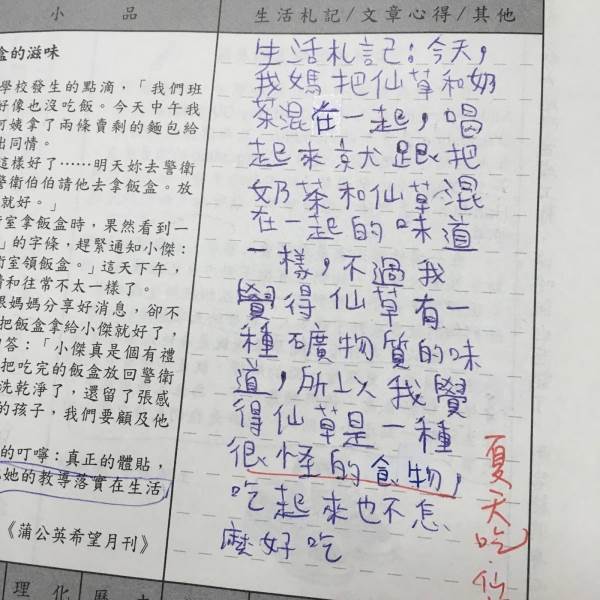 小 品
生活札記/文章心得/其他
盒的滋味
學校發生的點滴，「我們班
好像也沒吃飯。今天中午我
阿姨拿了兩條賣剩的麵包給
出同情。
這樣好了……明天妳去警衛
警衛伯伯請他去拿飯盒。放
就好。」
衛室拿飯盒時，果然看到一
」的字條，趕緊通知小傑：
衛室領飯盒。」這天下午，
情和往常不太一樣了。
跟媽媽分享好消息，卻不
把飯盒拿給小傑就好了，
回答：「小傑真是個有禮
把吃完的飯盒放回警衛
洗乾淨了，還留了張感
的孩子，我們要顧及他
的叮嚀：真正的體貼，
她的教導落實在生活
《蒲公英希望月刊》
生活札記：今天，
我媽把仙草和奶
茶混在一起，喝
起來就跟把
奶茶和仙草混
在一起的味道
一樣，不過我
覺得仙草有一
種礦物質的味
道，所以我覺
得仙草是一種
很怪的食物，
吃起來也不怎
麼好吃
夏天吃仙
理化